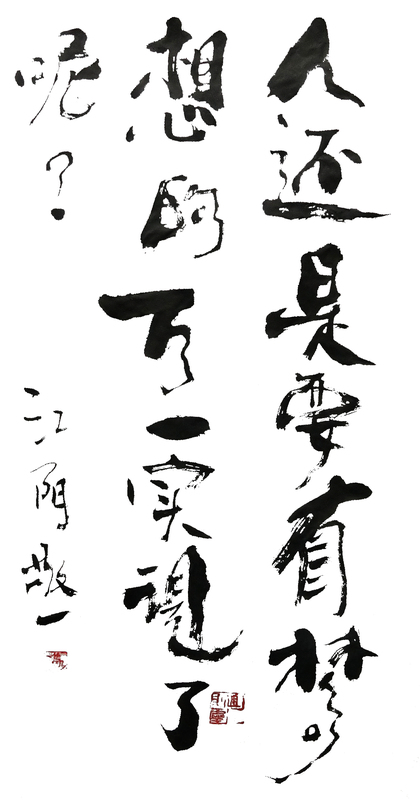 人还是要有梦
想的万一实现了
呢？
江门敬一